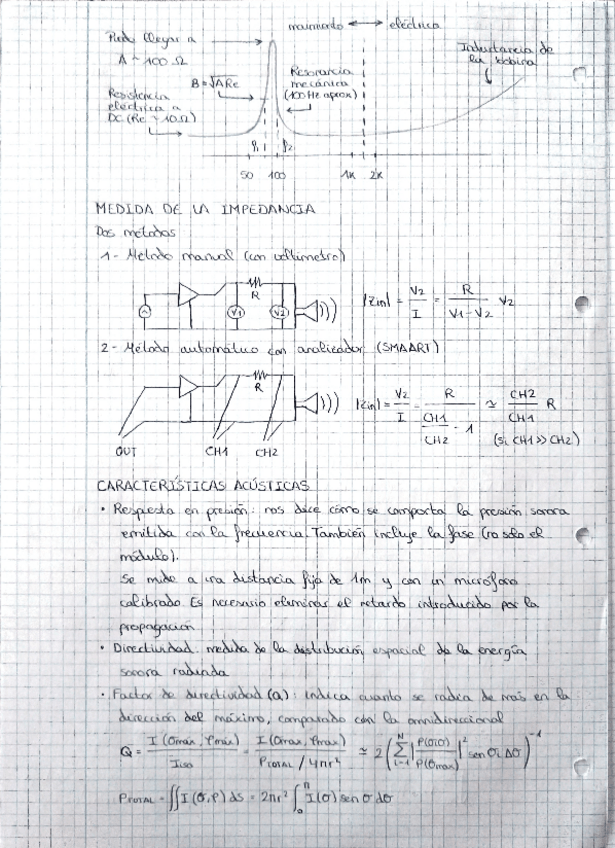 movimiento ⟷ eléctrico
Puede llegar a
A ~ 100 Ω
Inductancia de
la bobina
B = √ARe
Resonancia
mecánica
(100Hz aprox)
Resistencia
eléctrica a
DC (Re ~ 10Ω)
f1 f2
50 100 1k 2k
MEDIDA DE LA IMPEDANCIA
Dos métodos
1- Método manual (con voltímetro)
R
V1 V2
|Zin| = V2/I = R/(V1-V2) V2
2- Método automático con analizador (SMAART)
R
OUT CH1 CH2
|Zin| = V2/I = R/(CH1/CH2 - 1) ≃ CH2/CH1 R
(si CH1 >> CH2)
CARACTERÍSTICAS ACÚSTICAS
· Respuesta en presión: nos dice cómo se comporta la presión sonora
emitida con la frecuencia. También incluye la fase (no solo el
módulo).
Se mide a una distancia fija de 1m y con un micrófono
calibrado. Es necesario eliminar el retardo introducido por la
propagación
· Directividad: medida de la distribución espacial de la energía
sonora radiada
· Factor de directividad (Q): indica cuanto se radia de más en la
dirección del máximo, comparado con la omnidireccional
Q = I(θmáx, φmáx)/Iiso = I(θmax, φmax)/(PTOTAL/4πr²) ≃ 2(∑_{i=1}^{N} |P(θi)/P(θmax)|² sen θi Δθ)⁻¹
PTOTAL = ∬ I(θ,φ) ds = 2πr² ∫₀^π I(θ) sen θ dθ